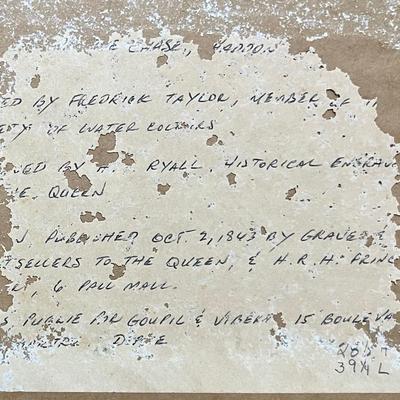 E CHASE, HADDON
ED BY FREDRICK TAYLOR, MEMBER OF
ETY OF WATER COLOURS
VED BY H. RYALL, HISTORICAL ENGRAV
E QUEEN
N, PUBLISHED OCT. 2, 1843 BY GRAVES &
TSELLERS TO THE QUEEN, & H.R.H. PRINC
RT, 6 PALL MALL.
S PUBLIE PAR GOUPIL & VIBERT 15 BOULEVA
20½ T
39¼ L